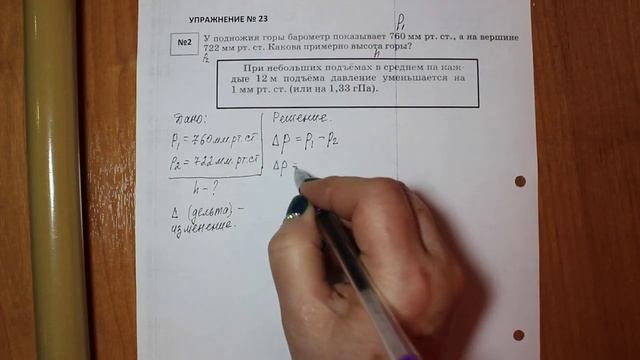 УПРАЖНЕНИЕ № 23
P₁
№2 У подножия горы барометр показывает 760 мм рт. ст., а на вершине
722 мм рт. ст. Какова примерно высота горы?
P₂ h
При небольших подъёмах в среднем на каж-
дые 12 м подъёма давление уменьшается на
1 мм рт. ст. (или на 1,33 гПа).
Дано:
P₁ = 760 мм.рт.ст
P₂ = 722 мм.рт.ст
h - ?
Δ (дельта) -
изменение.
Решение.
Δp = P₁ - P₂
Δp =